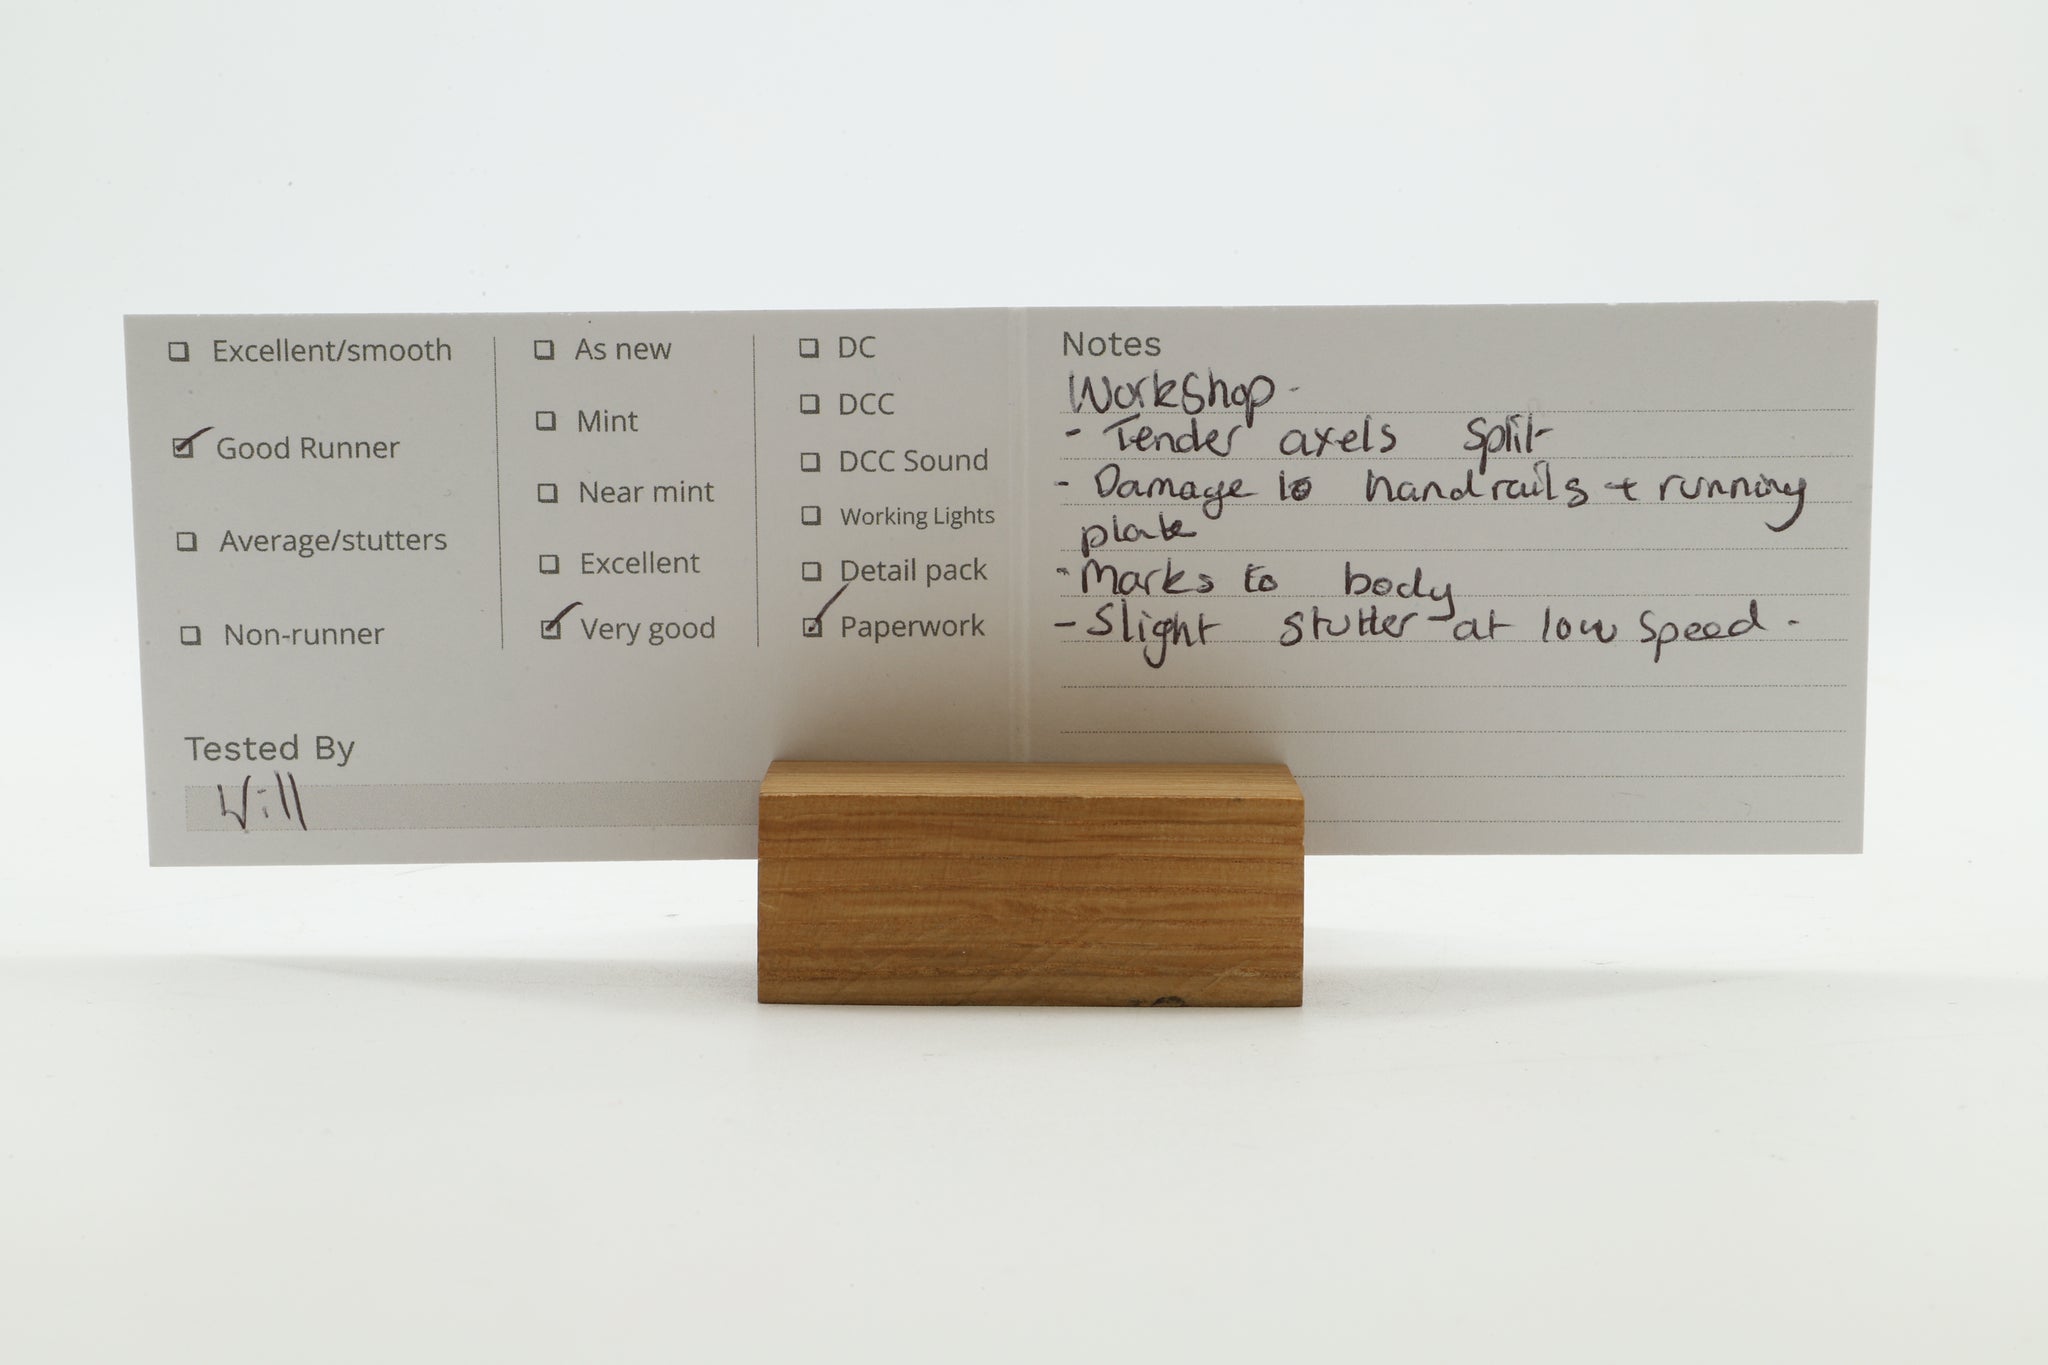 Excellent/smooth
Good Runner
Average/stutters
Non-runner
As new
Mint
Near mint
Excellent
Very good
DC
DCC
DCC Sound
Working Lights
Detail pack
Paperwork
Tested By
Will
Notes
Workshop -
- Tender axels split
- Damage to handrails + running
plate
- Marks to body
- Slight stutter at low speed -